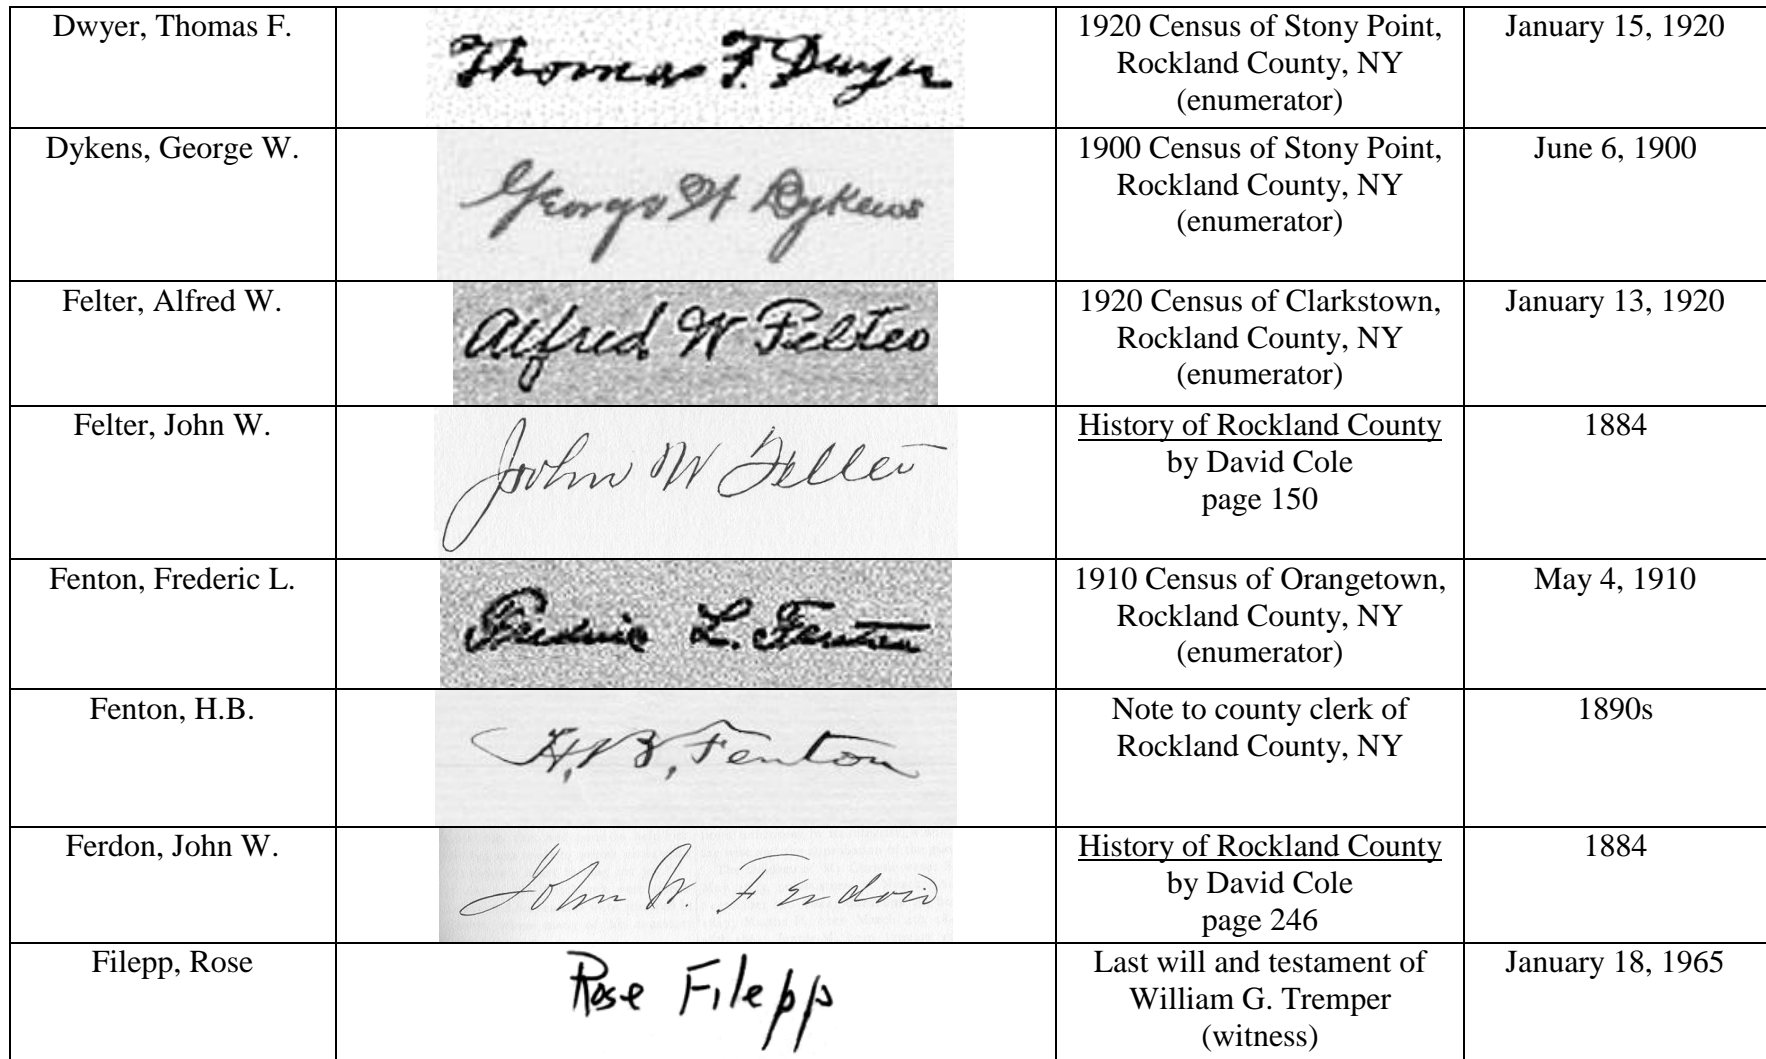 Dwyer, Thomas F.
Thomas F. Dwyer
1920 Census of Stony Point,
Rockland County, NY
(enumerator)
January 15, 1920
Dykens, George W.
George W Dykens
1900 Census of Stony Point,
Rockland County, NY
(enumerator)
June 6, 1900
Felter, Alfred W.
Alfred W Felter
1920 Census of Clarkstown,
Rockland County, NY
(enumerator)
January 13, 1920
Felter, John W.
John W Felter
History of Rockland County
by David Cole
page 150
1884
Fenton, Frederic L.
Frederic L. Fenton
1910 Census of Orangetown,
Rockland County, NY
(enumerator)
May 4, 1910
Fenton, H.B.
H.B. Fenton
Note to county clerk of
Rockland County, NY
1890s
Ferdon, John W.
John W. Ferdon
History of Rockland County
by David Cole
page 246
1884
Filepp, Rose
Rose Filepp
Last will and testament of
William G. Tremper
(witness)
January 18, 1965